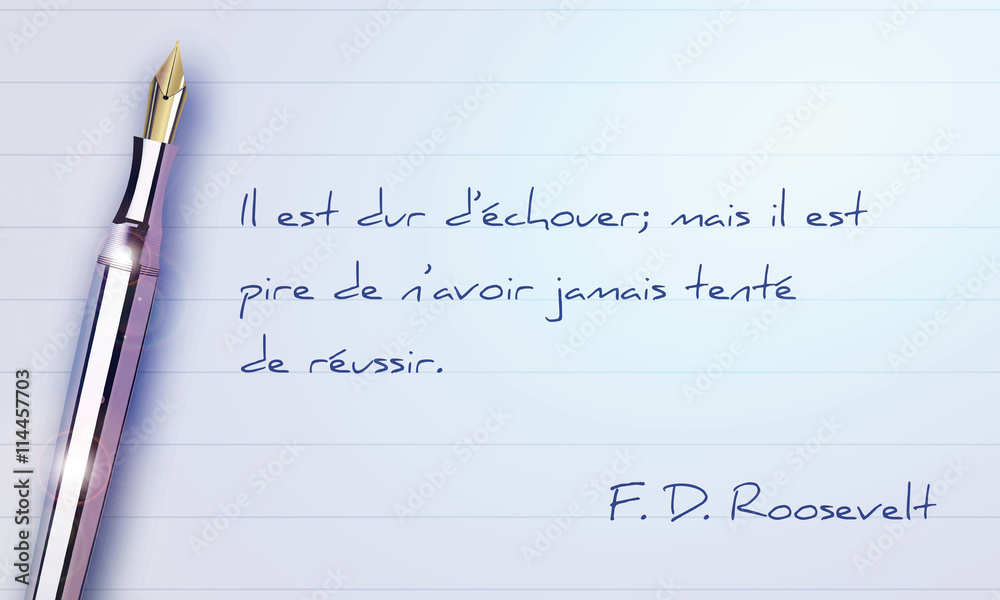 Il est dur d'échouer; mais il est
pire de n'avoir jamais tenté
de réussir.
F. D. Roosevelt
Adobe Stock | #114457703